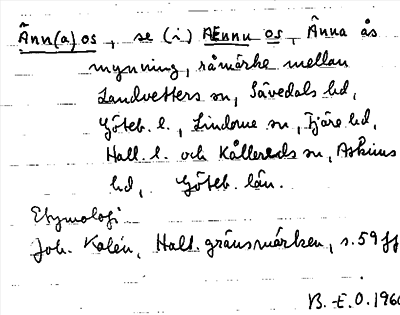 Änn(a) os, se (i) AEnnu os, Änna ås
mynning, råmärke mellan
Landvetters sn, Sävedals hd,
Göteb. l., Lindome sn, Fjäre hd,
Hall. l. och Kållereds sn, Askims
hd, Göteb. län.
Etymologi
Joh. Kalén, Hall. gränsmärken, s. 59 ff
B. E. O. 1960